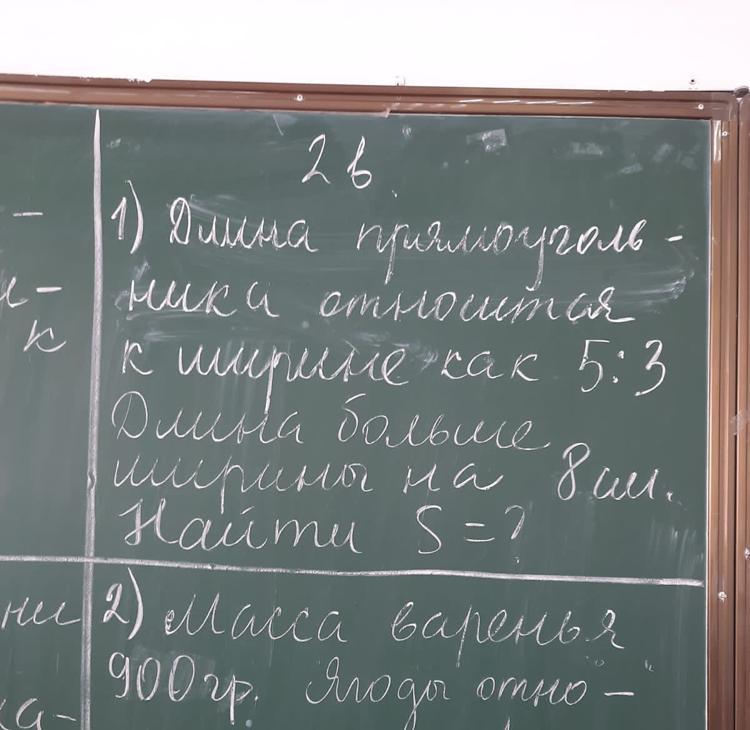 2в.
1) Длина прямоуголь-
ника относится
к ширине как 5:3
Длина больше
ширины на 8 см.
Найти S = ?
2) Масса варенья
900 гр. Ягоды отно-
к
ни
ка-